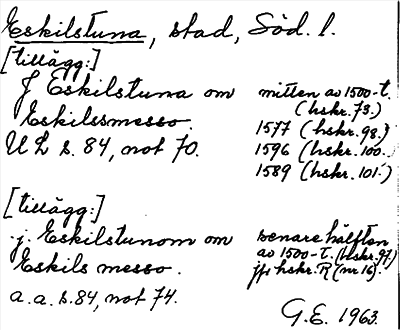 Eskilstuna, stad, Söd. l.
[tillägg:]
J Eskilstuna om mitten av 1500-t.
(hskr. 73.)
Eskilssmesso. 1577 (hskr. 98.)
U L s. 84, not 70. 1596 (hskr. 100.)
1589 (hskr. 101.)
[tillägg:]
j. Eskilstunom om senare hälften
av 1500-t. (hskr. 97)
Eskils messo. jfr hskr. R (nr 16).
a. a. s. 84, not 74.
G.E. 1963.